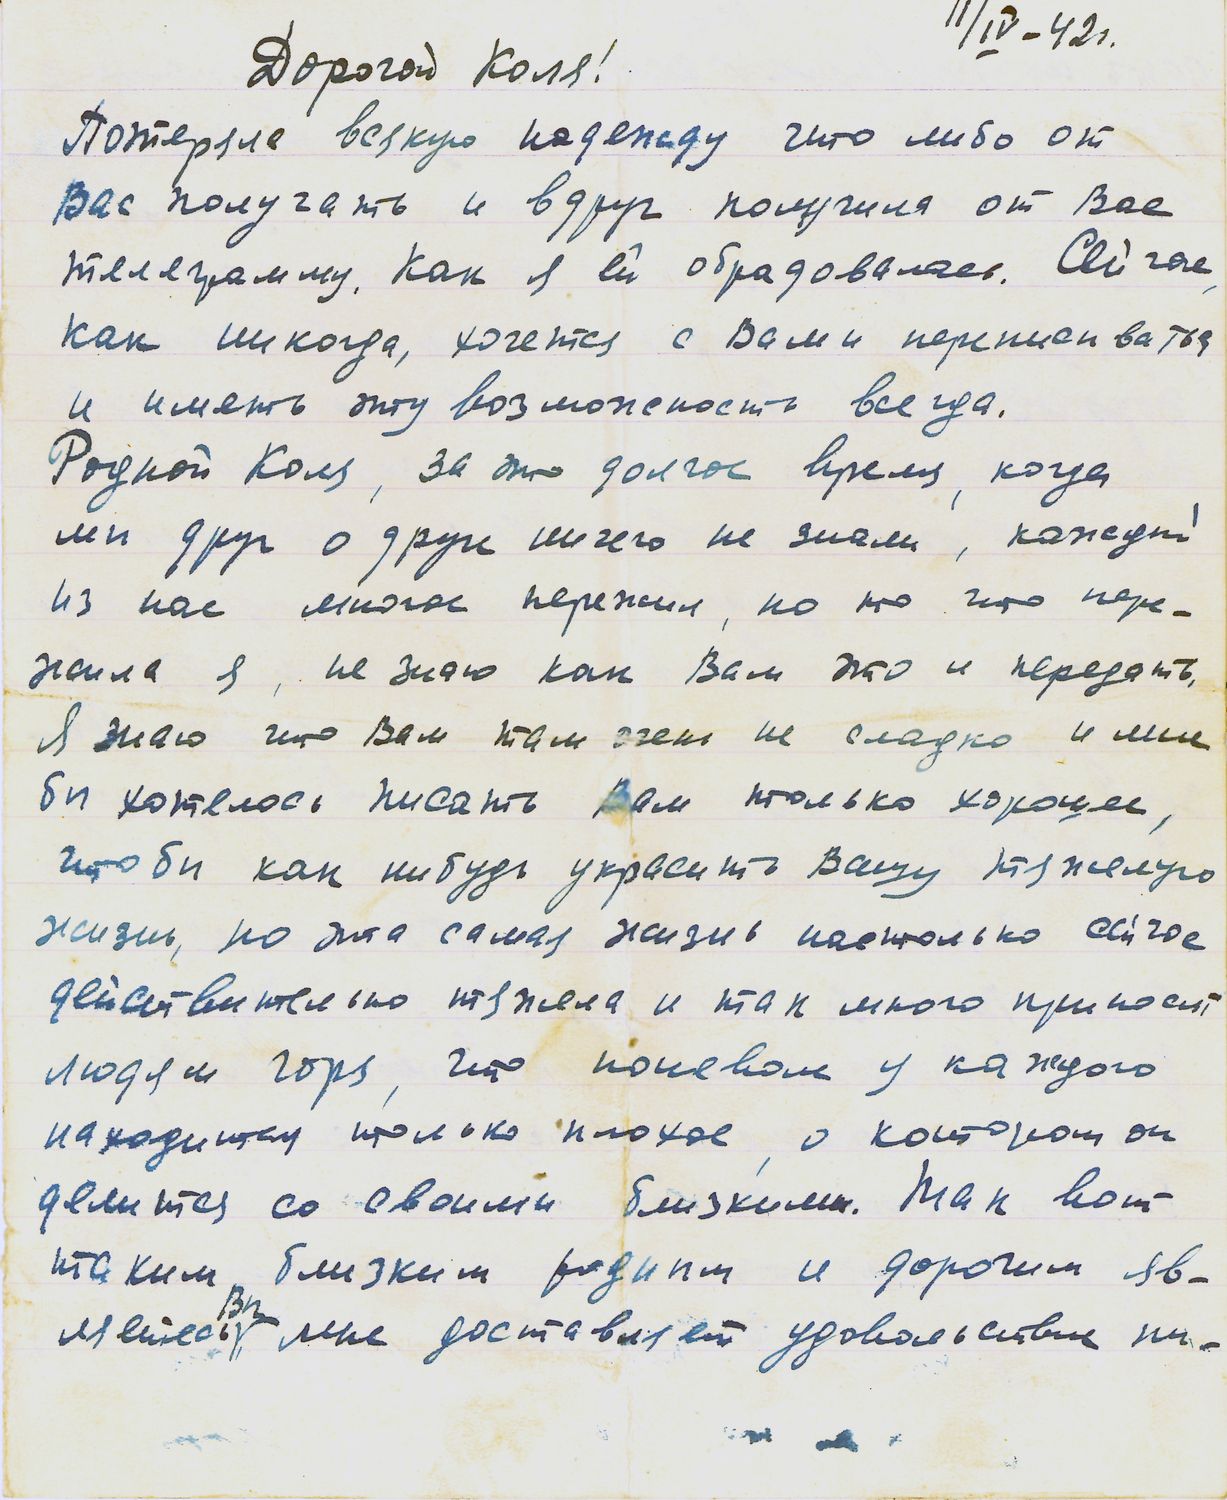 11/IV-42г.
Дорогой Коля!
Потеряла всякую надежду что либо от
Вас получать и вдруг получила от Вас
телеграмму. Как я ей обрадовалась. Сейчас,
как никогда, хочется с Вами переписываться
и иметь эту возможность всегда.
Родной Коля, за это долгое время, когда
мы друг о друге ничего не знали, каждый
из нас многое пережил, но то что пере-
жила я, не знаю как Вам это и передать.
Я знаю что Вам там очень не сладко и мне
бы хотелось писать Вам только хорошее,
чтобы как нибудь украсить Вашу тяжелую
жизнь, но эта самая жизнь настолько сейчас
действительно тяжела и так много приносит
людям горя, что поневоле у каждого
находится только плохое, о котором он
делится со своими близкими. Так вот
таким близким родным и дорогим яв-
ляетесь Вы мне доставляет удовольствие пи-